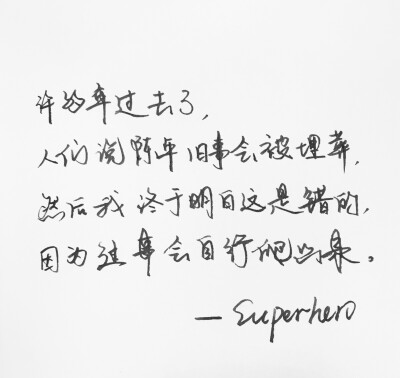 许多年过去了,
人们说陈年旧事会被埋葬,
然后我终于明白这是错的,
因为往事会自行爬出来。
— Superhero